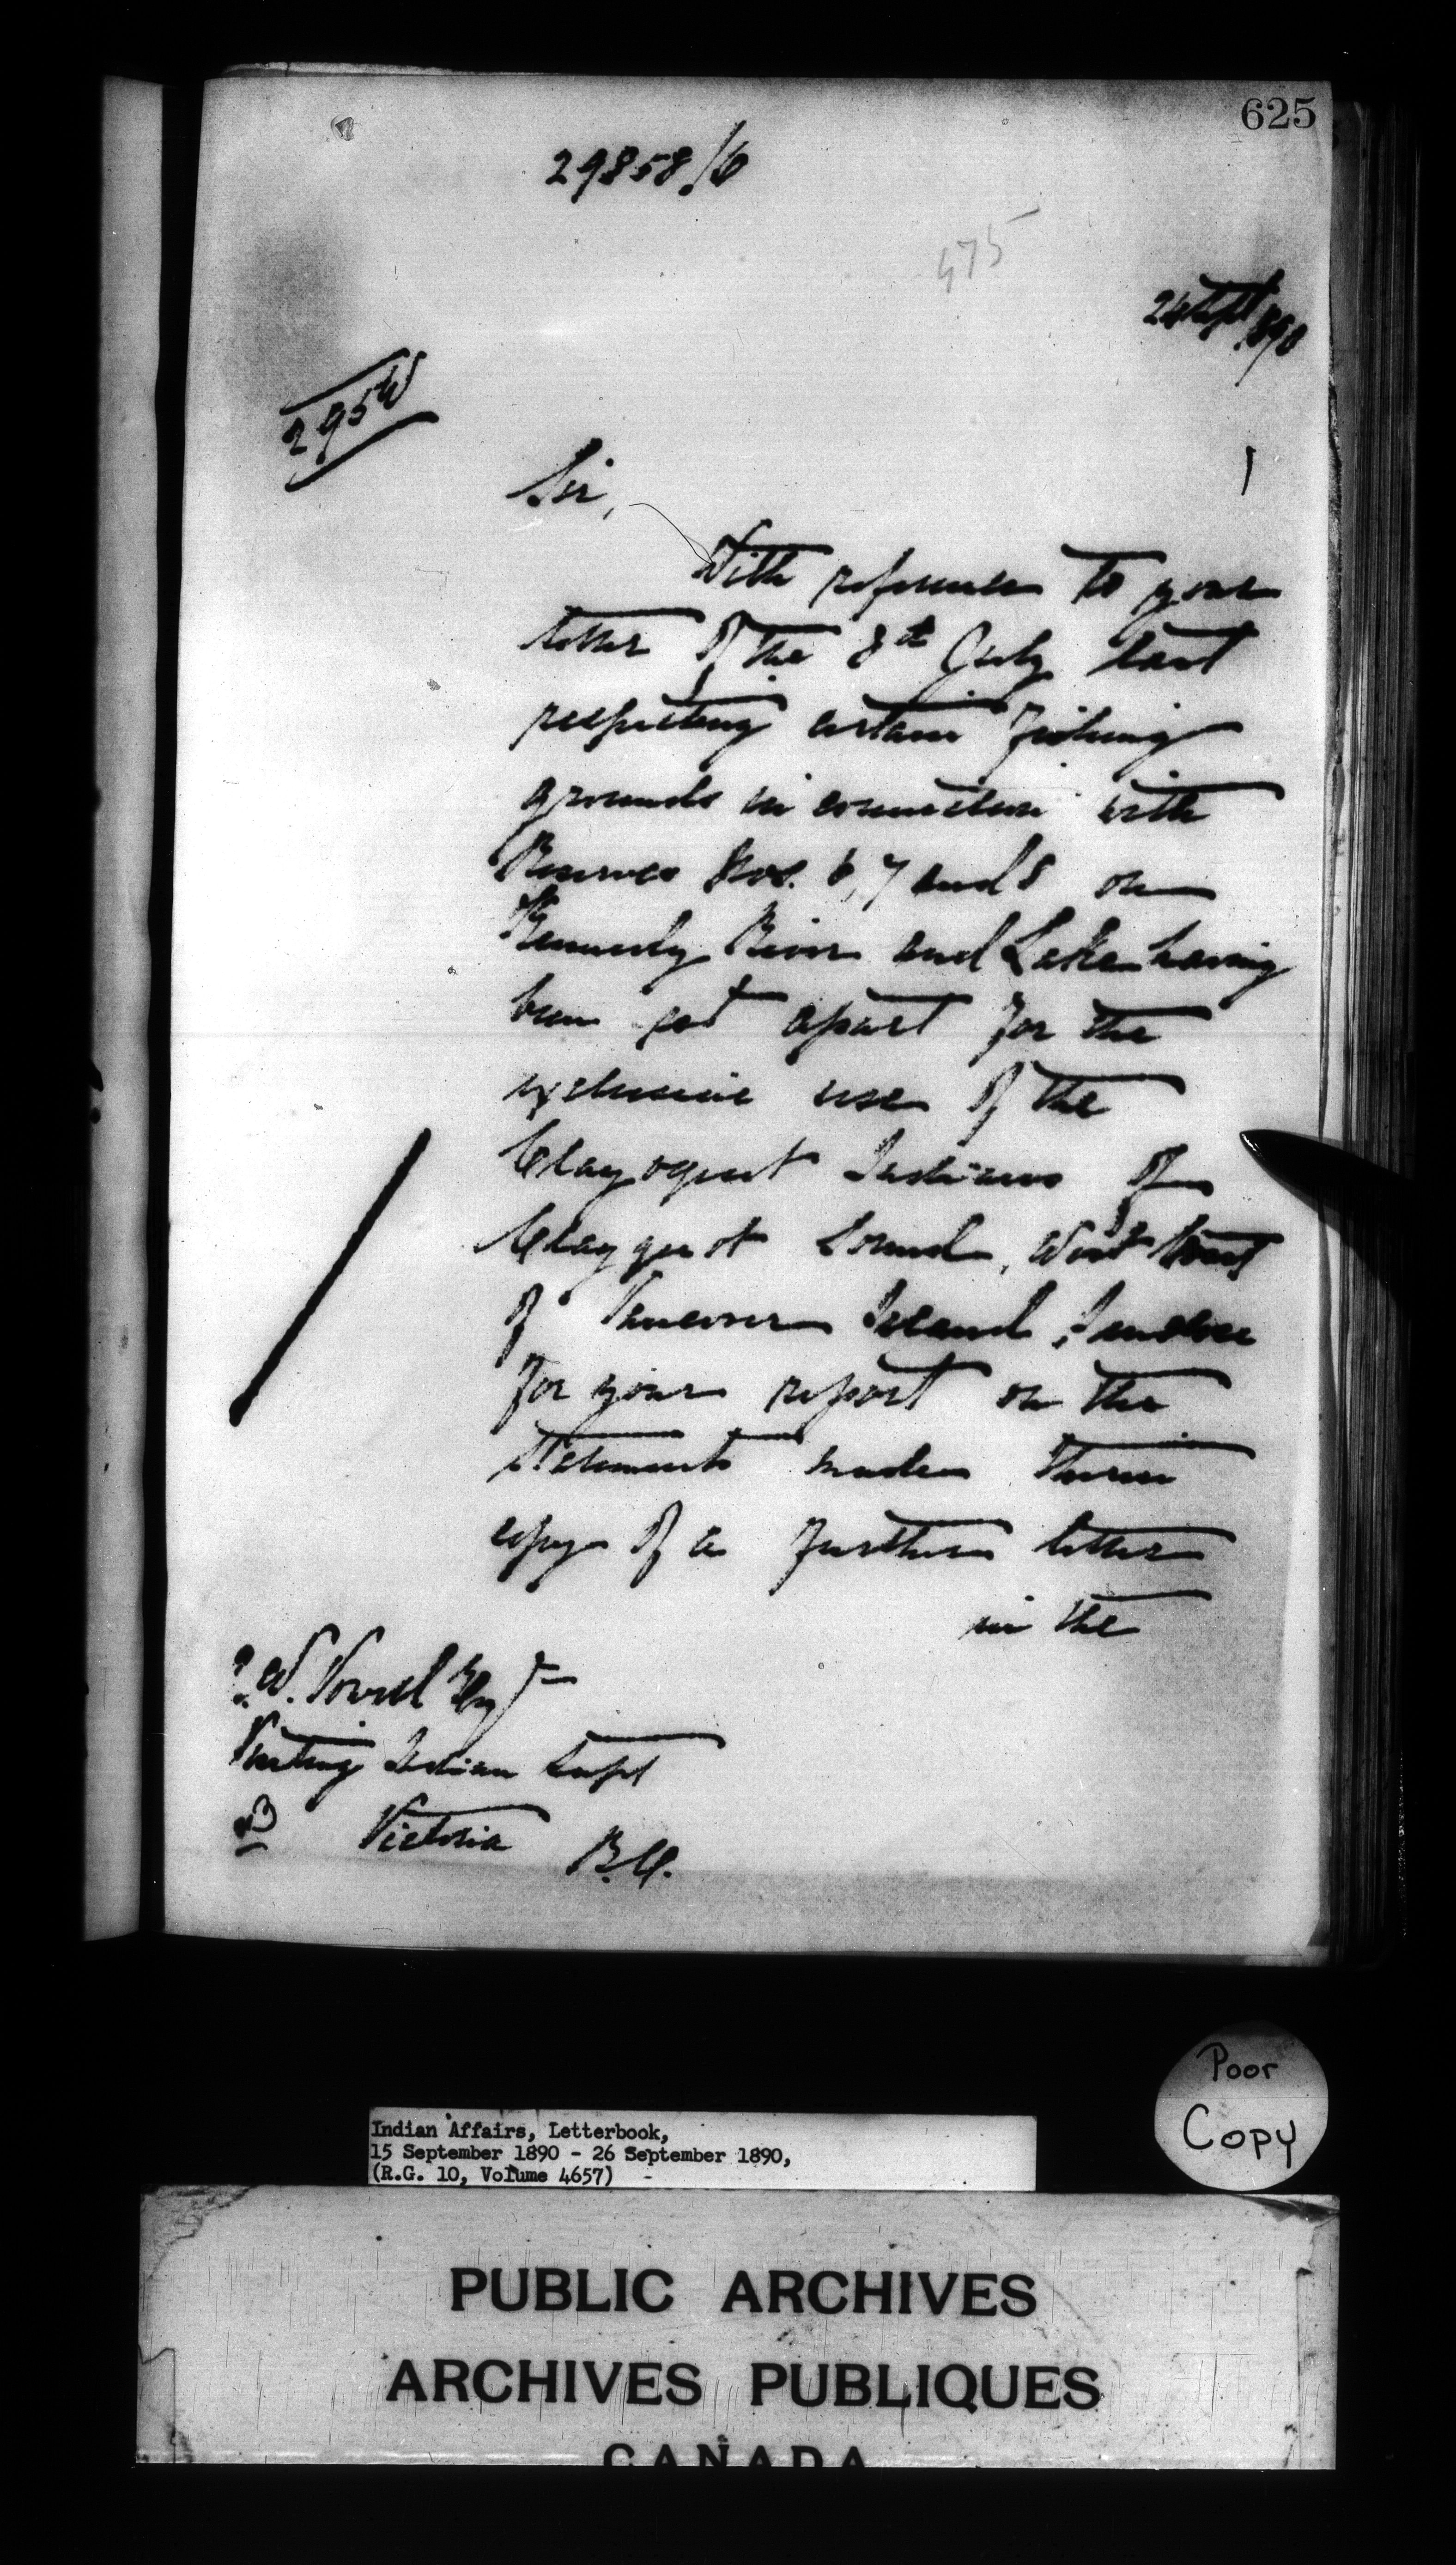 625
29858/6
475
24 Sept 1890
295 W
Sir,
With reference to your
letter of the 8th July last
respecting certain fishing
grounds in connection with
Reserves Nos. 6, 7 and 8 on
Kennedy River and Lake having
been set apart for the
exclusive use of the
Clayoquot Indians of
Clayoquot Sound, West Coast
of Vancouver Island, I enclose
for your report on the
statements made therein
copy of a further letter
in the
A. W. Vowell Esq
Visiting Indian Supt
Victoria B.C.
Poor
Copy
Indian Affairs, Letterbook,
15 September 1890 - 26 September 1890,
(R.G. 10, Volume 4657) -
PUBLIC ARCHIVES
ARCHIVES PUBLIQUES
CANADA